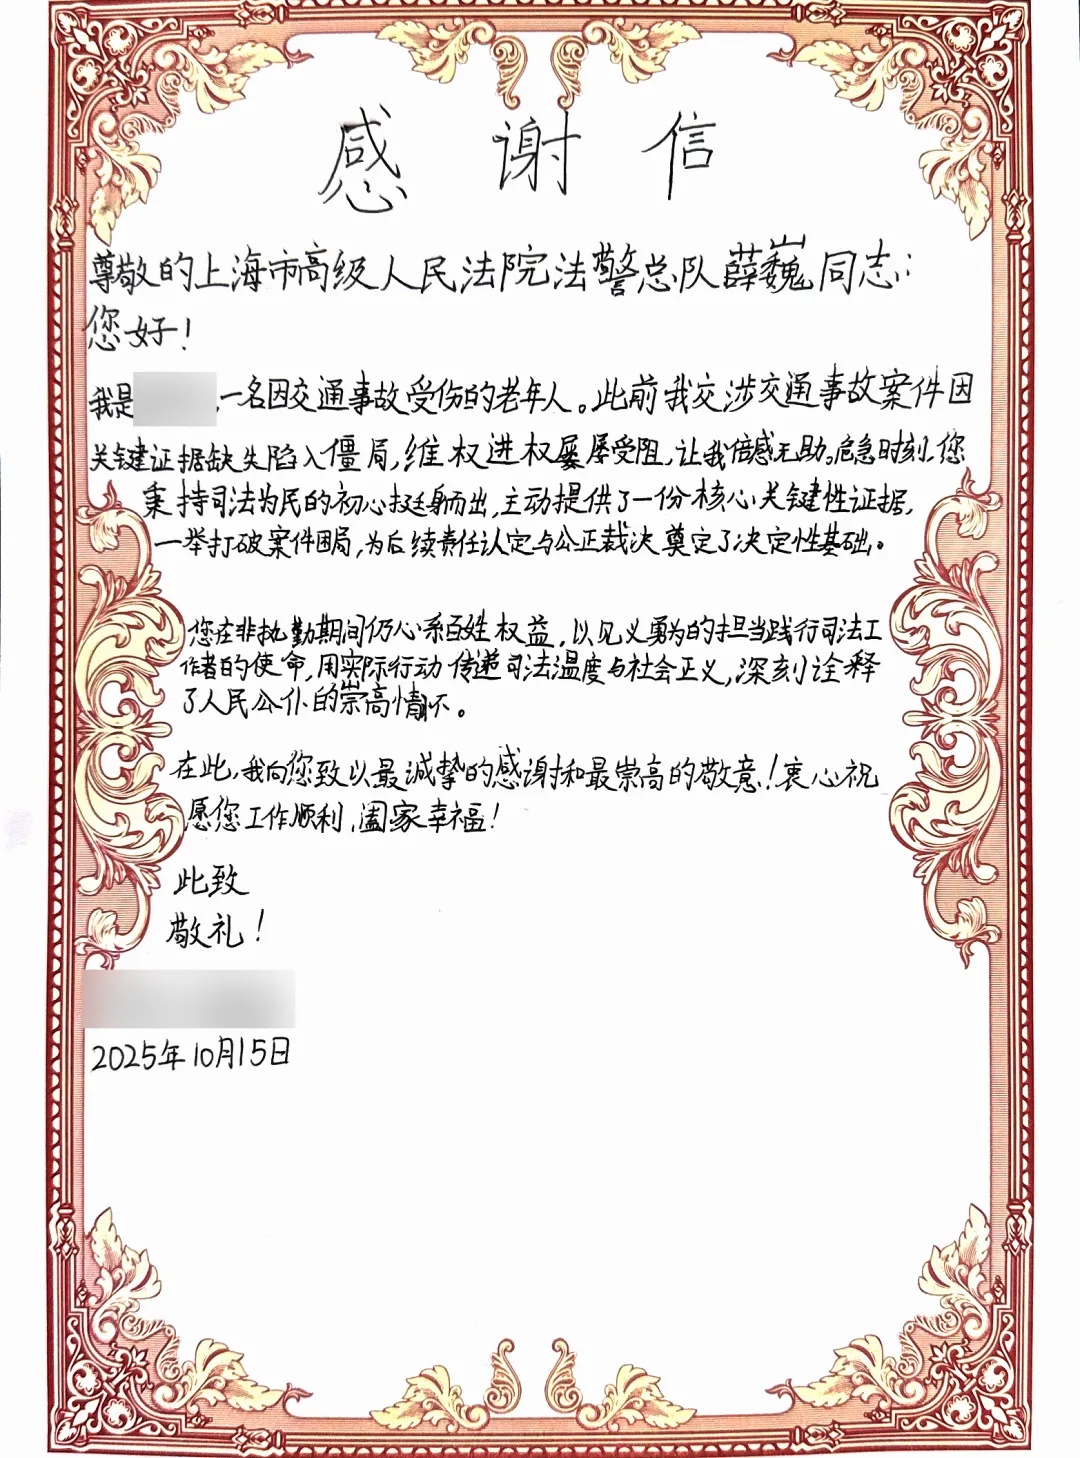 感谢信
尊敬的上海市高级人民法院法警总队薛巍同志:
您好!
我是 ,一名因交通事故受伤的老年人。此前我交涉交通事故案件因
关键证据缺失陷入僵局,维权进权屡屡受阻,让我倍感无助。危急时刻,您
秉持司法为民的初心挺身而出,主动提供了一份核心关键性证据,
一举打破案件困局,为后续责任认定与公正裁决奠定了决定性基础。
您在非执勤期间仍心系百姓权益,以见义勇为的担当践行司法工
作者的使命,用实际行动传递司法温度与社会正义,深刻诠释
了人民公仆的崇高情怀。
在此,我向您致以最诚挚的感谢和最崇高的敬意!衷心祝
愿您工作顺利,阖家幸福!
此致
敬礼!
2025年10月15日